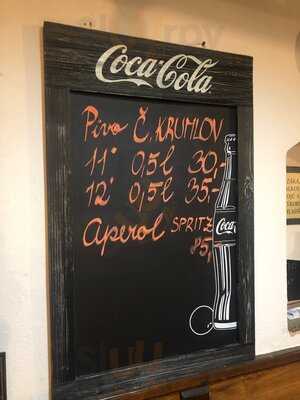 Coca-Cola
Pivo Č. KRUMLOV
11° 0,5l 30,-
12° 0,5l 35,-
Aperol SPRITZ
85,-
Coca